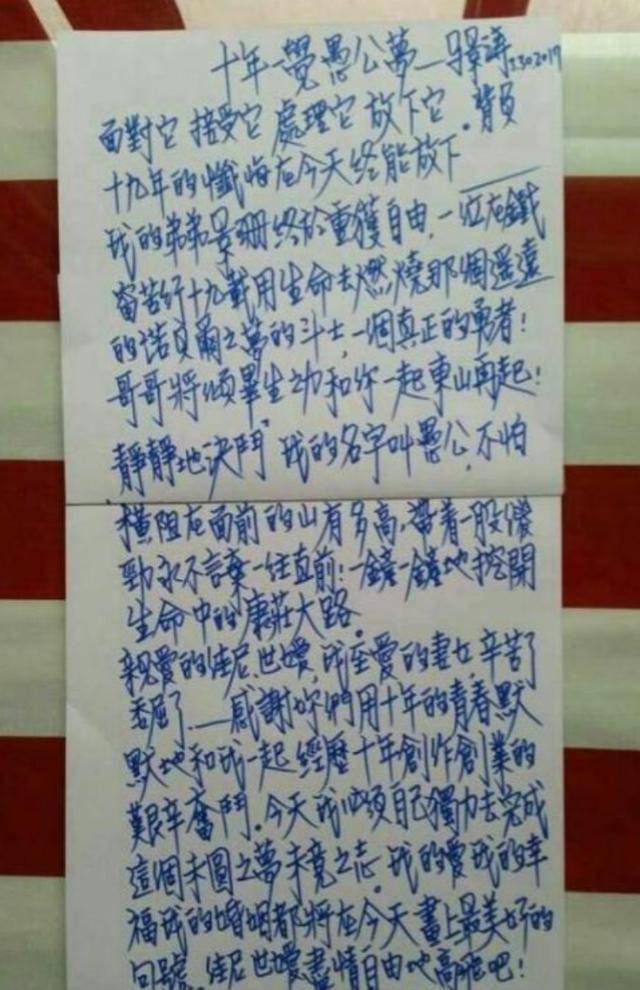 十年一覺愚公夢—驛濤 3.30.2019
面對它 接受它 處理它 放下它。背負
十九年的懺悔在今天终能放下——
我的弟弟景珊终於重獲自由,一位在鐵
窗苦行十九載用生命去燃燒那個遥遠
的諾貝爾之夢的斗士,一個真正的勇者!
哥哥將傾畢生之功和你一起東山再起!
靜靜地決鬥 我的名字叫愚公,不怕
橫阻在面前的山有多高,帶着一股傻
勁永不言棄一往直前!一鏟一鏟地挖開
生命中的康莊大路。
親愛的佳尼,世嬡,我至愛的妻女,辛苦了
委屈了——感謝你們用十年的青春默
默地和我一起經歷十年創作創業的
艱辛奮鬥。今天我必須自己獨力去完成
這個未圓之夢未竟之志。我的愛我的幸
福我的婚姻都將在今天畫上最美好的
句號。佳尼世嬡盡情自由地高飛吧!